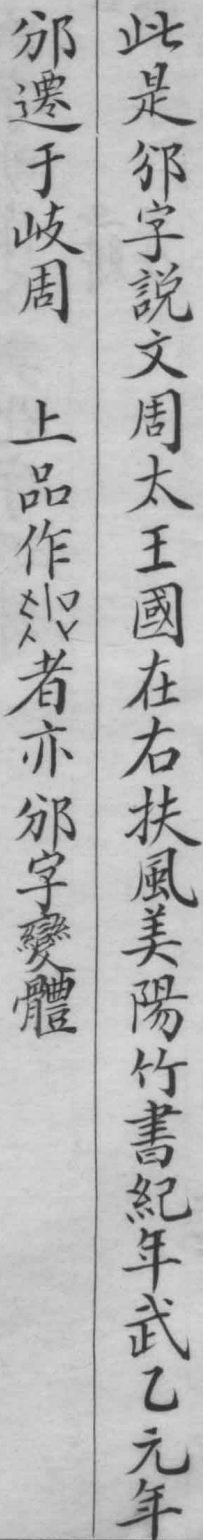 此是邠字説文周太王國在右扶風美陽竹書紀年武乙元年
邠遷于岐周　上品作者亦邠字變體